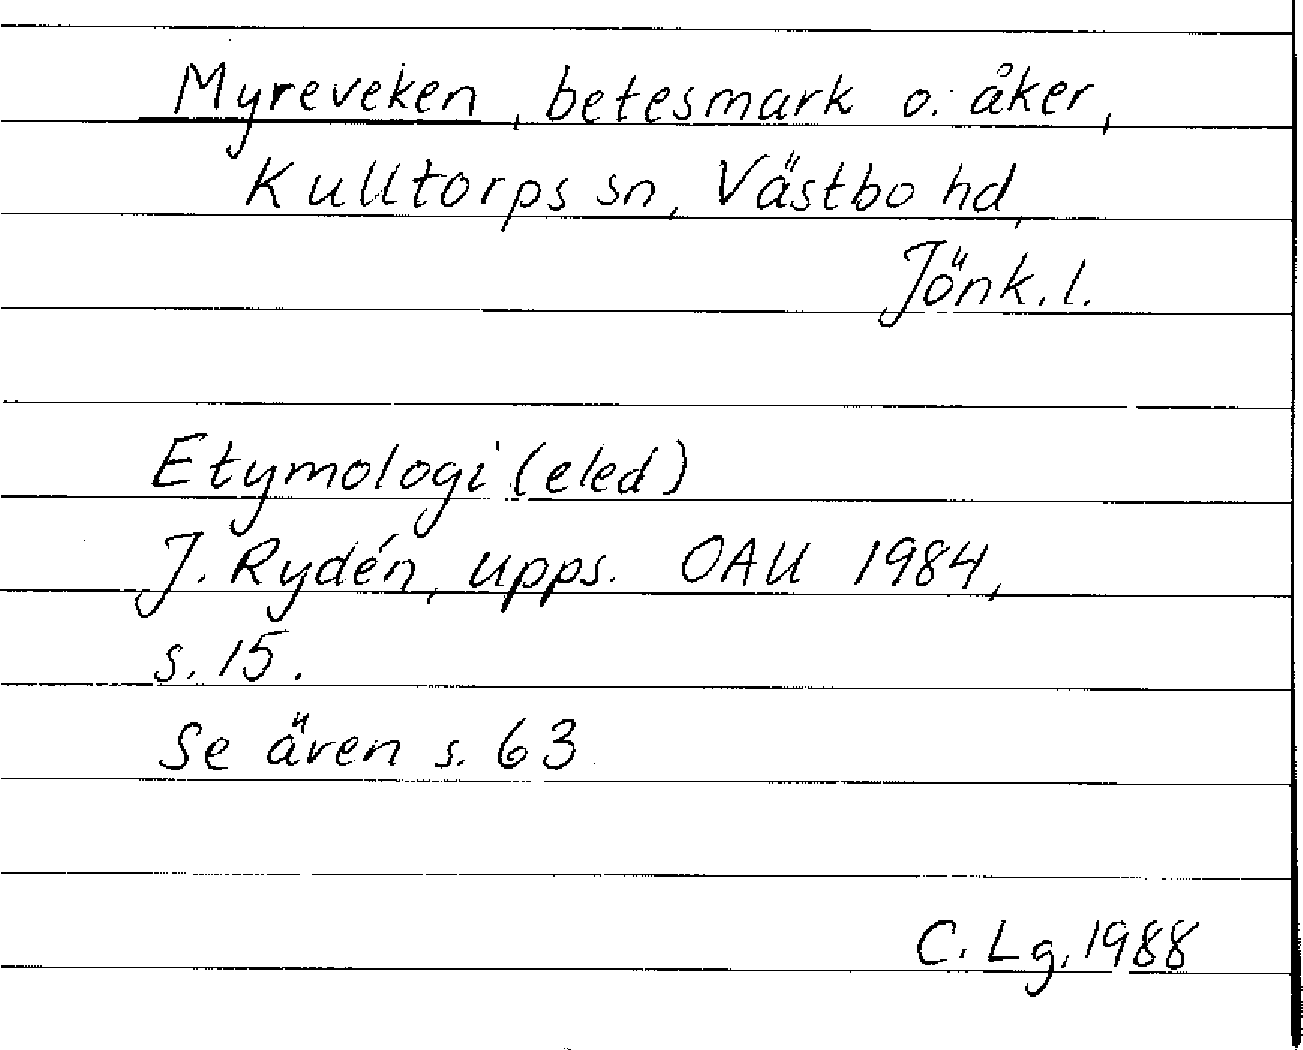 Myreveken, betesmark o. åker,
Kulltorps sn, Västbo hd,
Jönk. l.
Etymologi (eled)
J. Rydén, upps. OAU 1984,
s. 15.
Se även s. 63
C. Lg. 1988